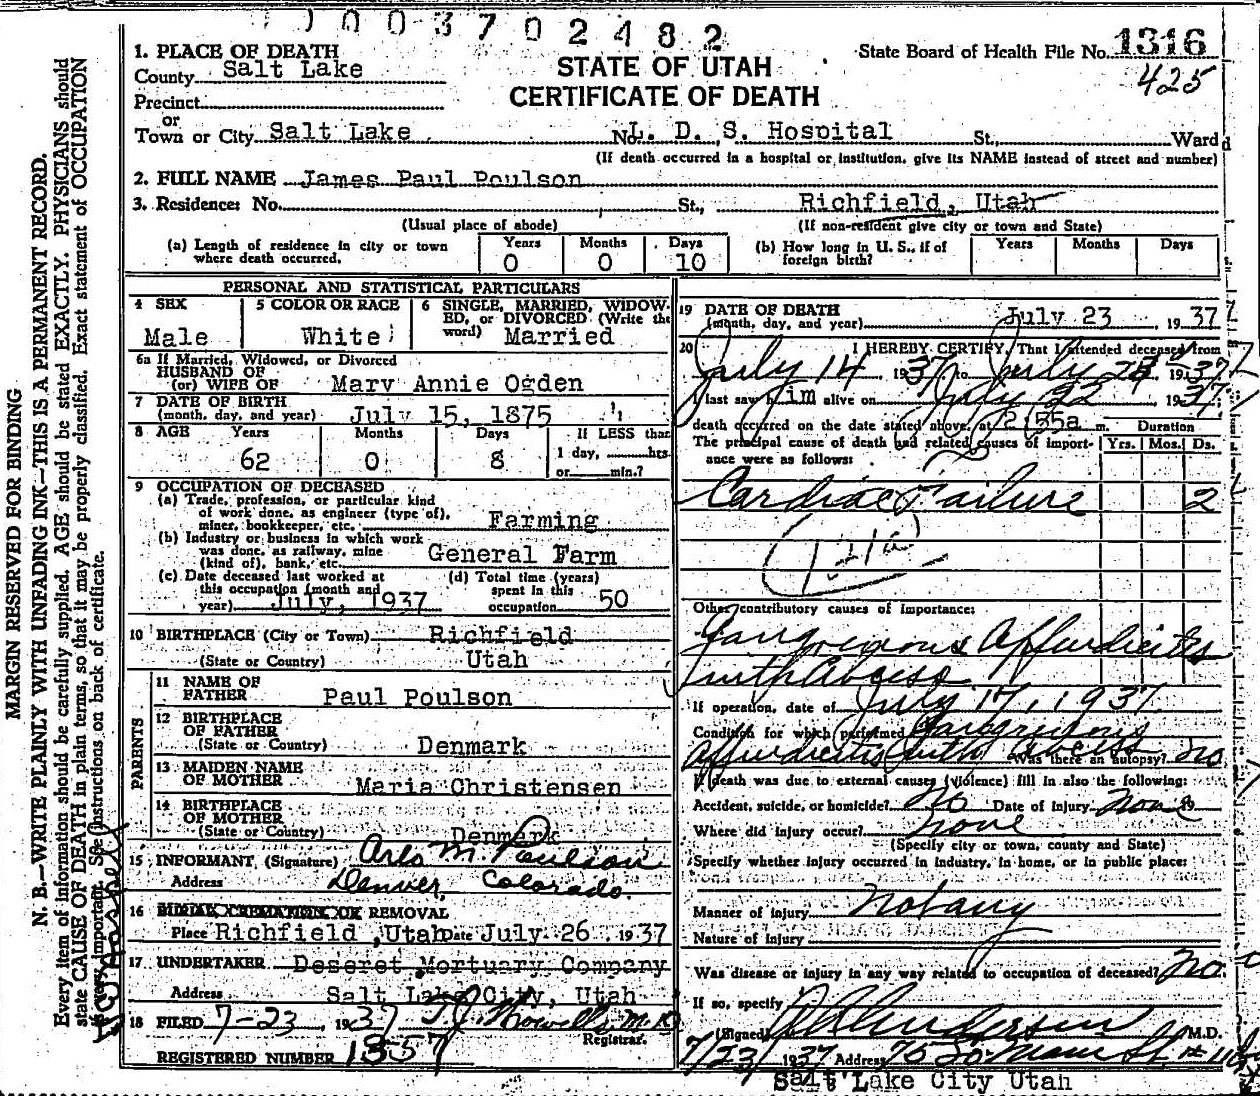 003702482
1. PLACE OF DEATH
County Salt Lake
Precinct
or
Town or City Salt Lake No. L. D. S. Hospital St., Ward
STATE OF UTAH
CERTIFICATE OF DEATH
State Board of Health File No. 1316
425
(If death occurred in a hospital or institution, give its NAME instead of street and number)
2. FULL NAME James Paul Poulson
3. Residence: No. St., Richfield, Utah
(Usual place of abode) (If non-resident give city or town and State)
(a) Length of residence in city or town where death occurred. Years 0 Months 0 Days 10
(b) How long in U. S., if of foreign birth? Years Months Days
PERSONAL AND STATISTICAL PARTICULARS
4 SEX Male
5 COLOR OR RACE White
6 SINGLE, MARRIED, WIDOWED, or DIVORCED (Write the word) Married
6a If Married, Widowed, or Divorced
HUSBAND OF
(or) WIFE OF Mary Annie Ogden
7 DATE OF BIRTH
(month, day, and year) July 15, 1875
8 AGE Years 62 Months 0 Days 8 If LESS than 1 day, hrs. or min.?
9 OCCUPATION OF DECEASED
(a) Trade, profession, or particular kind
of work done, as engineer (type of),
miner, bookkeeper, etc. Farming
(b) Industry or business in which work
was done, as railway, mine
(kind of), bank, etc. General Farm
(c) Date deceased last worked at
this occupation (month and
year) July, 1937
(d) Total time (years)
spent in this
occupation 50
10 BIRTHPLACE (City or Town) Richfield
(State or Country) Utah
PARENTS
11 NAME OF
FATHER Paul Poulson
12 BIRTHPLACE
OF FATHER
(State or Country) Denmark
13 MAIDEN NAME
OF MOTHER Maria Christensen
14 BIRTHPLACE
OF MOTHER
(State or Country) Denmark
15 INFORMANT, (Signature) Arlo M. Poulson
Address Denver, Colorado.
16 BURIAL CREMATION OR REMOVAL
Place Richfield, Utah Date July 26 1937
17 UNDERTAKER Deseret Mortuary Company
Address Salt Lake City, Utah
18 FILED 7-23, 1937 T. J. Howells M.D.
Registrar.
REGISTERED NUMBER 1357
19 DATE OF DEATH
(month, day, and year) July 23, 1937
20 I HEREBY CERTIFY, That I attended deceased from
July 14 1937, to July 23, 1937
I last saw him alive on July 22 1937,
death occurred on the date stated above, at 2:55a m. Duration
The principal cause of death and related causes of importance were as follows: Yrs. Mos. Ds.
Cardiac Failure 2
(121a)
Other contributory causes of importance:
Gangrenous Appendicitis
with Abcess
If operation, date of July 17, 1937
Condition for which performed Gangrenous
Appendicitis with Abcess Was there an autopsy? no
If death was due to external causes (violence) fill in also the following:
Accident, suicide, or homicide? No Date of Injury None
Where did injury occur? none
(Specify city or town, county and State)
Specify whether injury occurred in industry, in home, or in public place:
Manner of injury Not any
Nature of injury
Was disease or injury in any way related to occupation of deceased? No.
If so, specify
(Signed) Anderson M.D.
7/23/1937 Address 75 So. Main St.
Salt Lake City Utah
MARGIN RESERVED FOR BINDING
N. B.—WRITE PLAINLY WITH UNFADING INK—THIS IS A PERMANENT RECORD.
Every item of information should be carefully supplied. AGE should be stated EXACTLY. PHYSICIANS should
state CAUSE OF DEATH in plain terms, so that it may be properly classified. Exact statement of OCCUPATION
is very important. See instructions on back of certificate.